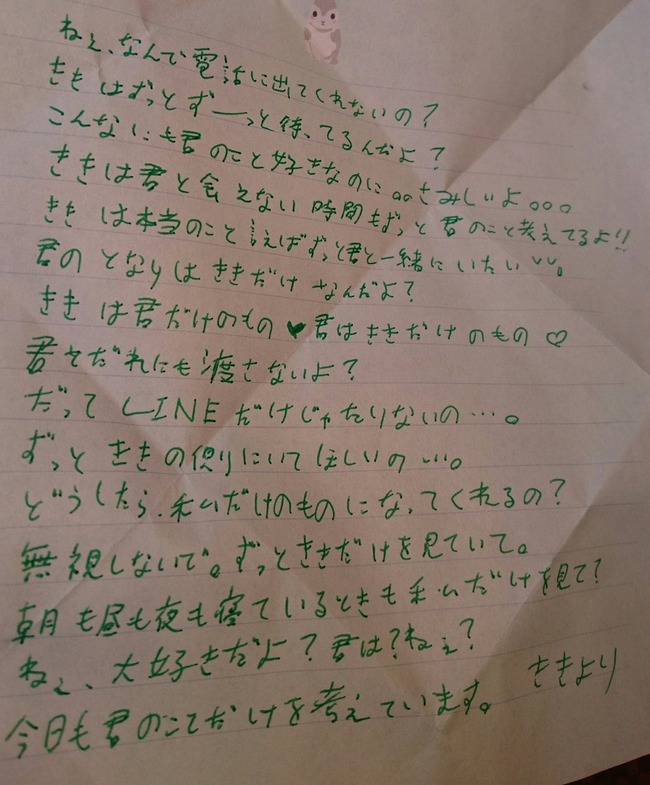 ねぇ、なんで電話に出てくれないの?
ききはずっとずーっと待ってるんだよ?
こんなにも君のこと好きなのに。。さみしいよ。。。
ききは君と会えない時間もずっと君のこと考えてるよ!!
ききは本当のこと言えばずっと君と一緒にいたい
君のとなりはききだけなんだよ?
ききは君だけのもの♥君はききだけのもの♡
君をだれにも渡さないよ?
だってLINEだけじゃたりないの…。
ずっとききの側りにいてほしいの…。
どうしたら、私だけのものになってくれるの?
無視しないで。ずっとききだけを見ていて。
朝も昼も夜も寝ているときも私だけを見て?
ねぇ、大好きだよ?君は?ねぇ?
ききより
今日も君のこてだけを考えています。